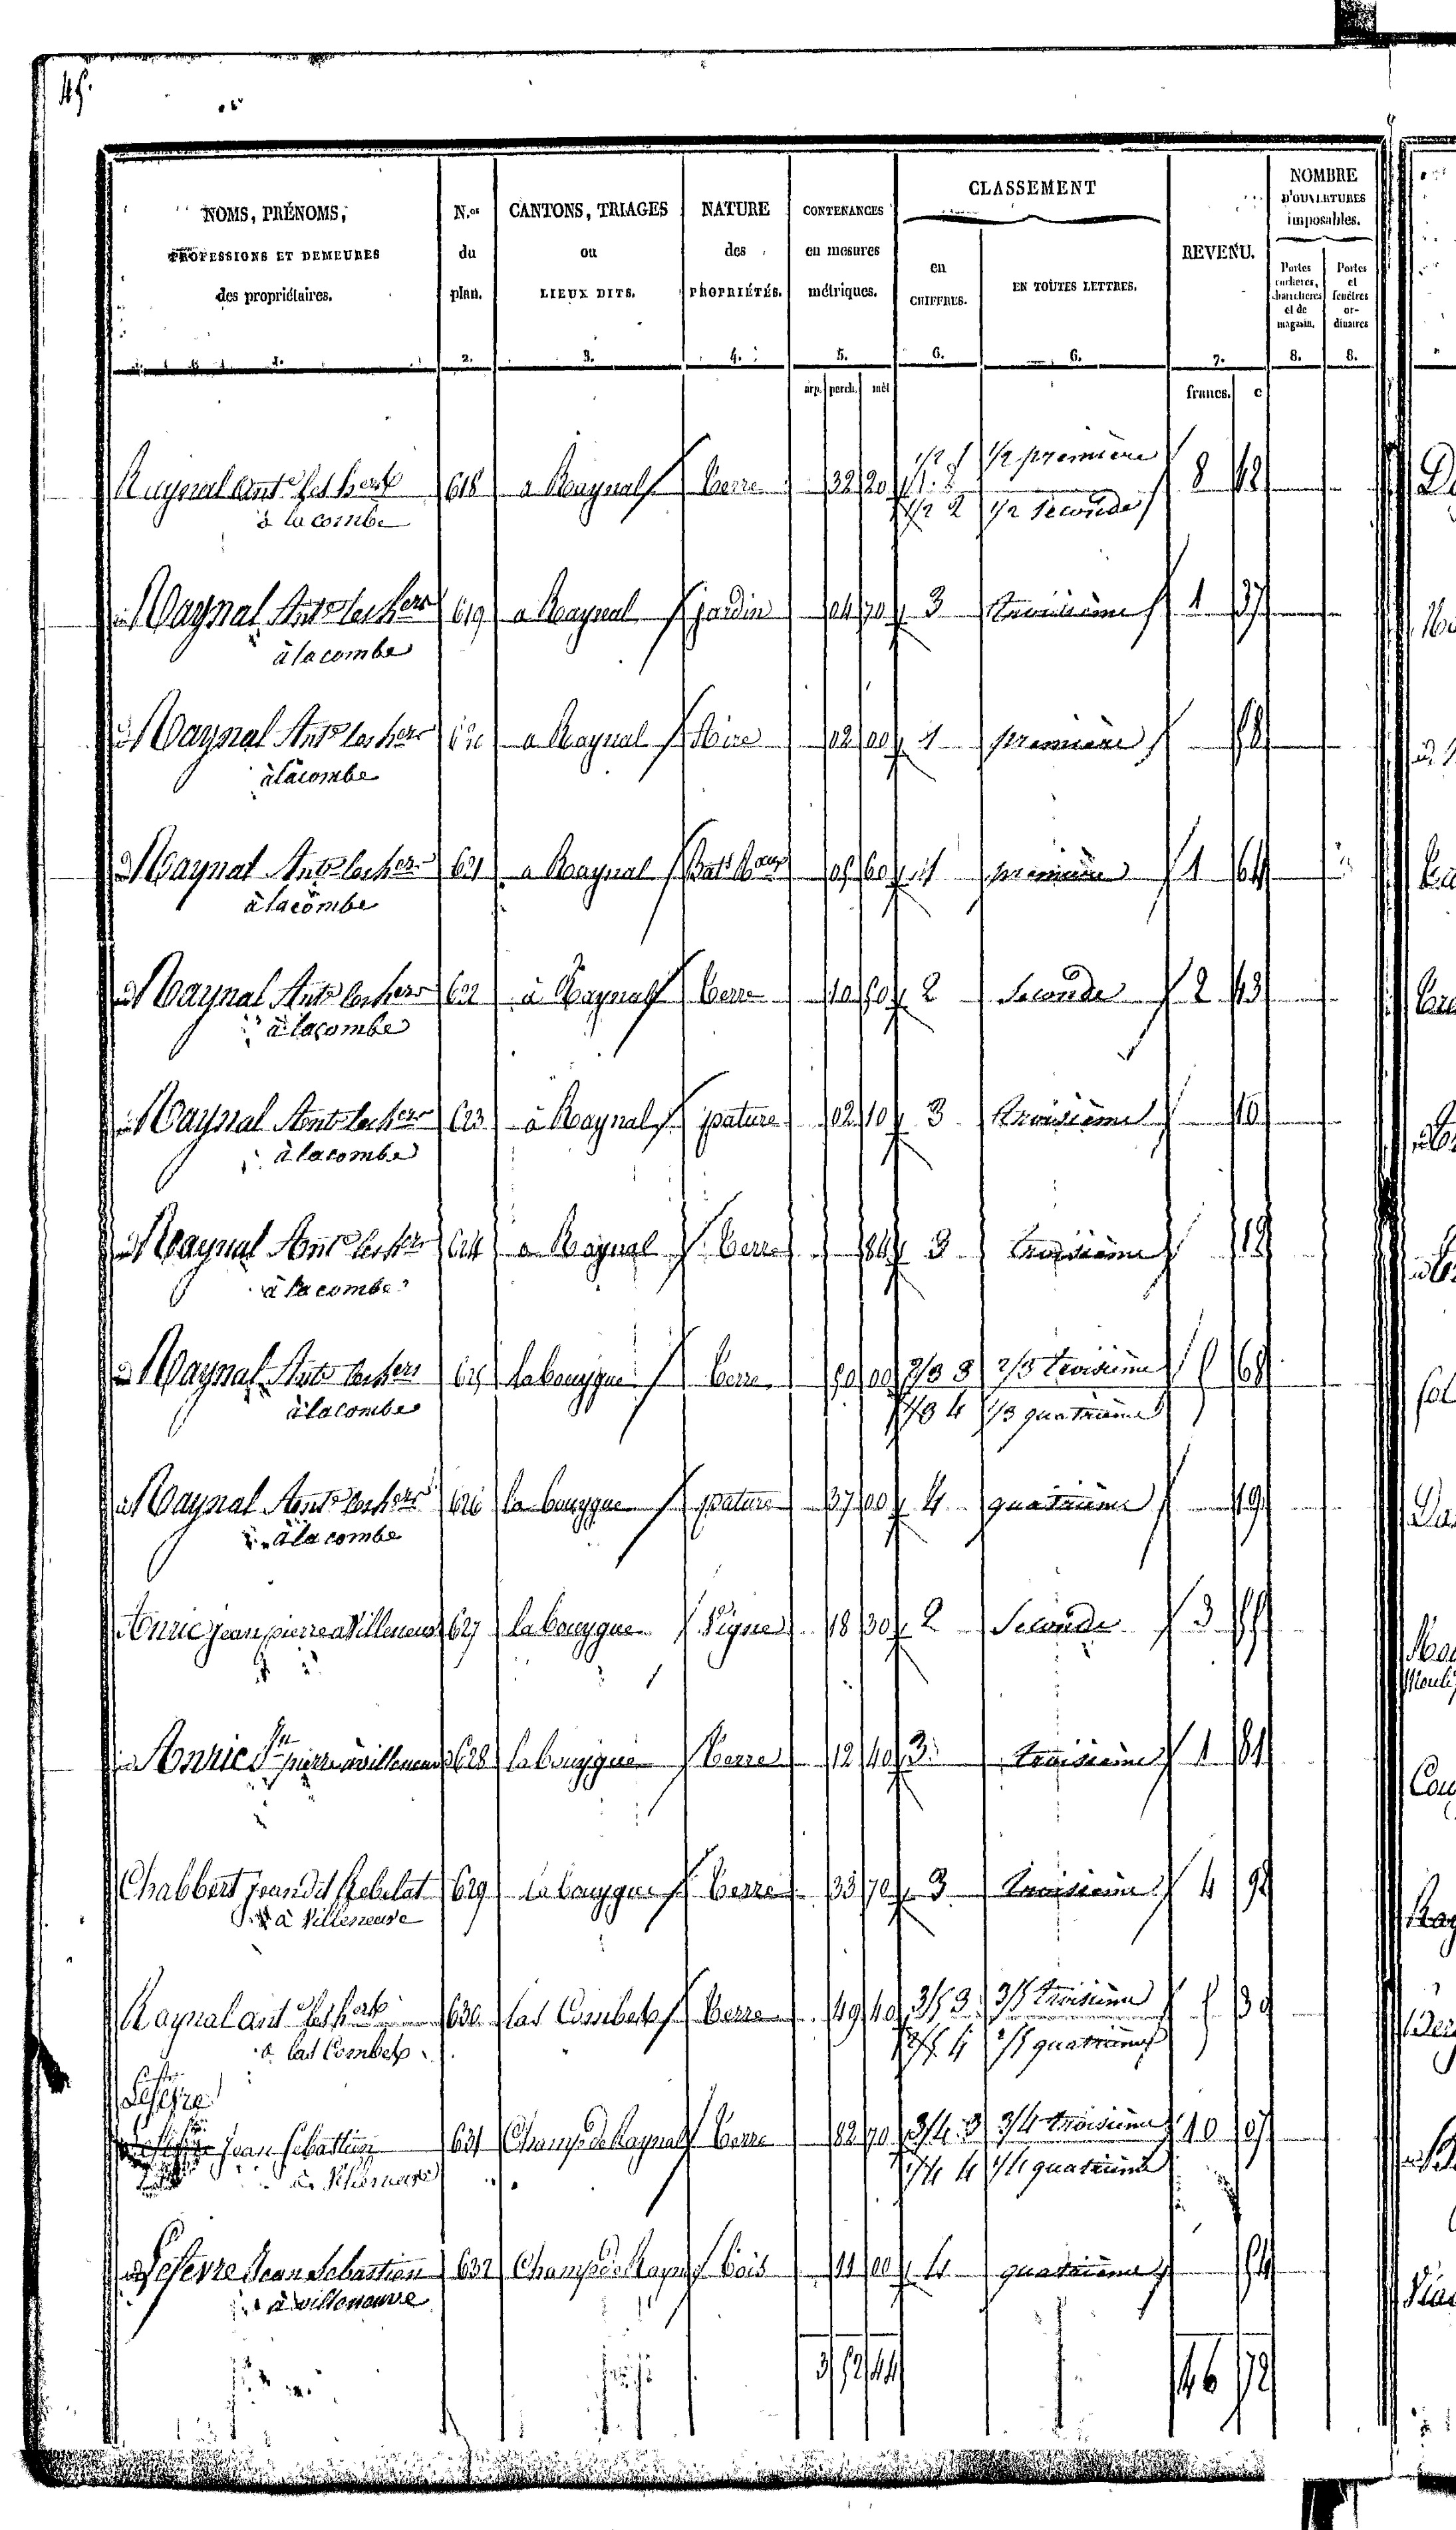 45.
NOMS, PRÉNOMS, PROFESSIONS ET DEMEURES des propriétaires. 1.
N.os du plan. 2.
CANTONS, TRIAGES ou LIEUX DITS. 3.
NATURE des PROPRIÉTÉS. 4.
CONTENANCES en mesures métriques. 5.
CLASSEMENT
en CHIFFRES. 6.
EN TOUTES LETTRES. 6.
REVENU. 7.
NOMBRE D'OUVERTURES imposables.
Portes cochères, charretières et de magasin. 8.
Portes et fenêtres ordinaires 8.
arp. perch. mèt francs. c
Raynal Ante les hers 618 a Raynal Terre 32 20 1/2 1 1/2 première 8 42
à la combe 1/2 2 1/2 seconde
Raynal Ante les hers 619 a Raynal jardin 04 70 3 troisième 1 37
à la combe
Raynal Ante les hers 620 a Raynal Aire 02 00 1 première 58
à la combe
Raynal Ante les hers 621 a Raynal Bat. 05 60 1 première 1 64
à la combe
Raynal Ante les hers 622 à Raynal Terre 10 50 2 Seconde 2 43
à la combe
Raynal Ante les hers 623 à Raynal pature 02 10 3 troisième 10
à la combe
Raynal Ante les hers 624 a Raynal Terre 84 3 troisième 12
à la combe
Raynal Ante les hers 625 labouygue Terre 50 00 2/3 3 2/3 troisième 5 68
à la combe 1/3 4 1/3 quatrième
Raynal Ante les hers 626 la bouygue pature 37 00 4 quatrième 19
à la combe
Anric jean pierre a Villeneuve 627 la bouygue Vigne 18 30 2 Seconde 3 55
Anric Jn pierre à villeneuve 628 la bouygue Terre 12 40 3 troisième 1 81
Chabbert jean dit Rebelat 629 la bouygue Terre 33 70 3 troisième 4 92
à Villeneuve
Raynal ante les hers 630 las Combets Terre 49 40 3/5 3 3/5 troisième 5 30
à las Combets 2/5 4 2/5 quatrième
Lefevre
jean sebastien 631 Champ de Raynal Terre 82 70 3/4 3 3/4 troisième 10 07
à Villeneuve 1/4 4 1/4 quatrième
Lefevre Jean Sebastien 632 Champ de Rayn bois 11 00 4 quatrième 54
à villeneuve
3 52 44 46 72